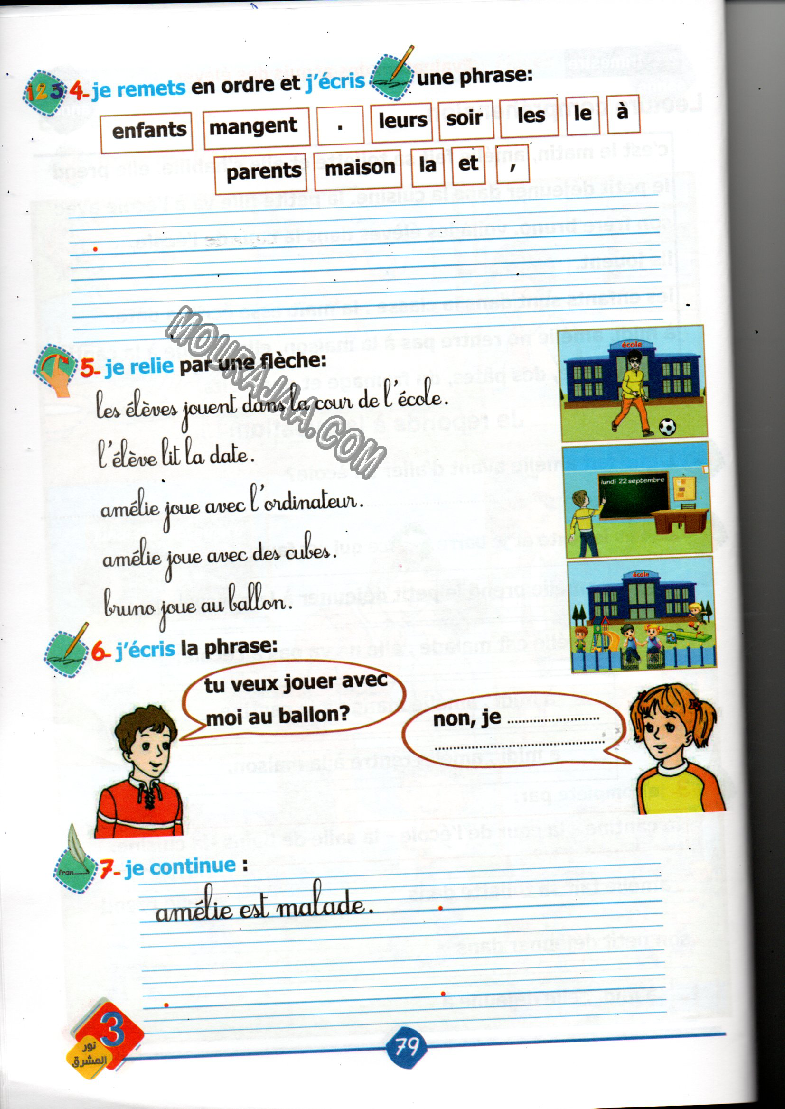 123 4-je remets en ordre et j'écris une phrase:
enfants mangent . leurs soir les le à
parents maison la et ,
MOURAJAA.COM
5- je relie par une flèche:
les élèves jouent dans la cour de l'école.
l'élève lit la date.
amélie joue avec l'ordinateur.
amélie joue avec des cubes.
bruno joue au ballon.
école
lundi 22 septembre
école
6- j'écris la phrase:
tu veux jouer avec
moi au ballon?
non, je ........................
.............................................
fran
7- je continue :
amélie est malade.
3
نور
المشرق
79